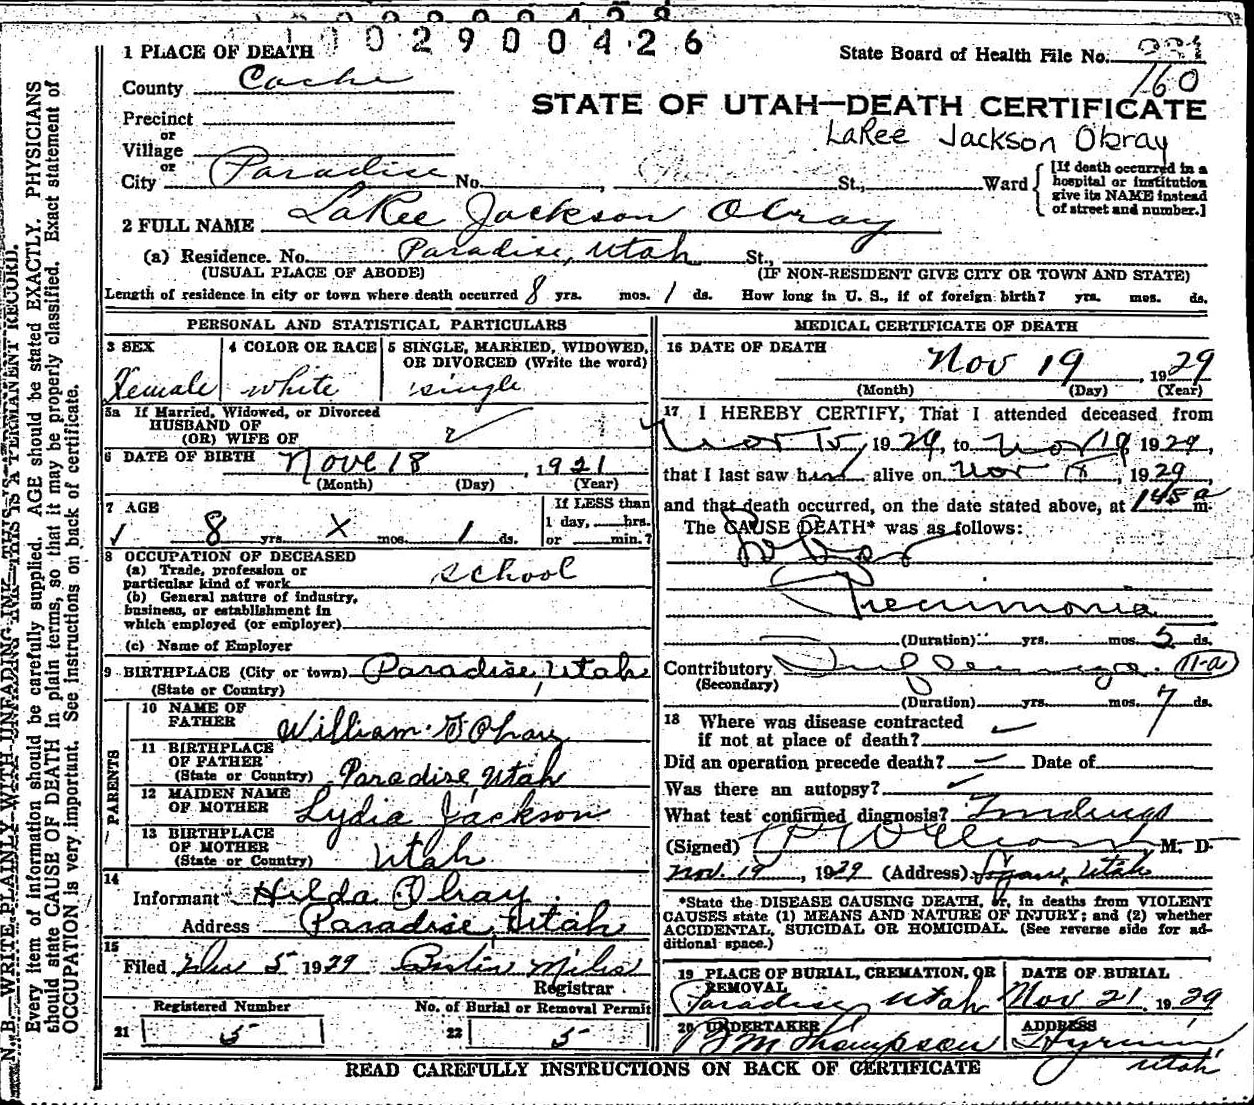 0 0 2 9 0 0 4 2 6
1 PLACE OF DEATH
State Board of Health File No.
160
County Cache
STATE OF UTAH—DEATH CERTIFICATE
Precinct
or
Village
LaRee Jackson Obray
or
City Paradise No. , St., Ward
[If death occurred in a hospital or institution give its NAME instead of street and number.]
2 FULL NAME LaRee Jackson Obray
(a) Residence. No. Paradise, Utah St.,
(USUAL PLACE OF ABODE) (IF NON-RESIDENT GIVE CITY OR TOWN AND STATE)
Length of residence in city or town where death occurred 8 yrs. mos. 1 ds. How long in U. S., if of foreign birth? yrs. mos. ds.
PERSONAL AND STATISTICAL PARTICULARS
3 SEX Female
4 COLOR OR RACE white
5 SINGLE, MARRIED, WIDOWED, OR DIVORCED (Write the word) single
5a If Married, Widowed, or Divorced
HUSBAND OF
(OR) WIFE OF
6 DATE OF BIRTH Nove 18, 1921
(Month) (Day) (Year)
7 AGE
8 yrs. X mos. 1 ds.
If LESS than
1 day, hrs.
or min.?
8 OCCUPATION OF DECEASED
(a) Trade, profession or
particular kind of work school
(b) General nature of industry,
business, or establishment in
which employed (or employer)
(c) Name of Employer
9 BIRTHPLACE (City or town) Paradise, Utah
(State or Country)
PARENTS
10 NAME OF
FATHER William G Obray
11 BIRTHPLACE
OF FATHER
(State or Country) Paradise, Utah
12 MAIDEN NAME
OF MOTHER Lydia Jackson
13 BIRTHPLACE
OF MOTHER
(State or Country) Utah
14
Informant Hilda Obray
Address Paradise, Utah
15
Filed Dec 5 1929
Registrar
Registered Number
21 5
No. of Burial or Removal Permit
22 5
MEDICAL CERTIFICATE OF DEATH
16 DATE OF DEATH
Nov 19, 1929
(Month) (Day) (Year)
17 I HEREBY CERTIFY, That I attended deceased from
Nov 15, 1929, to Nov 19 1929,
that I last saw her alive on Nov 18, 1929
and that death occurred, on the date stated above, at 145 a m.
The CAUSE DEATH* was as follows:
Lobar
Pneumonia
(Duration) yrs. mos. 5 ds.
Contributory Influenza 11-a
(Secondary)
(Duration) yrs. mos. 7 ds.
18 Where was disease contracted
if not at place of death?
Did an operation precede death? Date of
Was there an autopsy?
What test confirmed diagnosis? Findings
(Signed) M. D.
Nov. 19, 1929 (Address) Logan, Utah
*State the DISEASE CAUSING DEATH, or, in deaths from VIOLENT
CAUSES state (1) MEANS AND NATURE OF INJURY; and (2) whether
ACCIDENTAL, SUICIDAL OR HOMICIDAL. (See reverse side for ad-
ditional space.)
19 PLACE OF BURIAL, CREMATION, OR
REMOVAL
Paradise, Utah
DATE OF BURIAL
Nov 21 1929
20 UNDERTAKER
B M Thompson
ADDRESS
Hyrum
Utah
READ CAREFULLY INSTRUCTIONS ON BACK OF CERTIFICATE
N. B.—WRITE PLAINLY WITH UNFADING INK—THIS IS A PERMANENT RECORD.
Every item of information should be carefully supplied. AGE should be stated EXACTLY. PHYSICIANS
should state CAUSE OF DEATH in plain terms, so that it may be properly classified. Exact statement of
OCCUPATION is very important. See instructions on back of certificate.